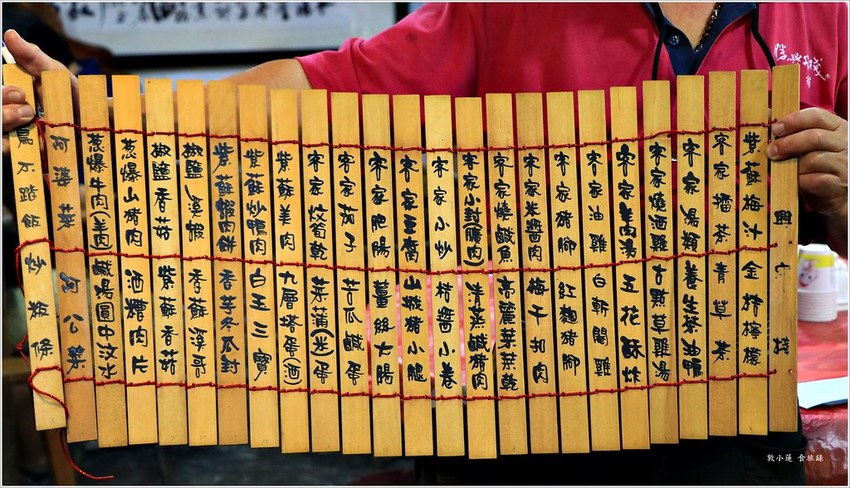 興中棧
紫蘇梅汁 金桔檸檬
客家擂茶 青草茶
客家湯類 養生茶油鴨
客家燒酒雞 古顆草雞湯
客家羊肉湯 五花酥炸
客家油雞 白斬閹雞
客家豬腳 紅麴豬腳
客家米醬肉 梅干扣肉
客家燒鹹魚 高麗菜菜乾
客家小封(爌肉) 清蒸鹹豬肉
客家小炒 桔醬小卷
客家豆腐 山豬豬小腿
客家肥腸 薑絲大腸
客家茄子 苦瓜鹹蛋
客家炆筍乾 菜蒲(米)蛋
紫蘇羊肉 九層塔蛋(酒)
紫蘇炒鴨肉 白玉三寶
紫蘇蝦肉餅 香芋冬瓜封
椒鹽溪蝦 香蘇溪哥
椒鹽香菇 紫蘇香菇
蔥爆山豬肉 酒糟肉片
蔥爆牛肉(羊肉) 鹹湯圓中汶水
阿婆菜 阿公菜
鳥不踏飯 炒粄條
敦小蓮 食旅錄